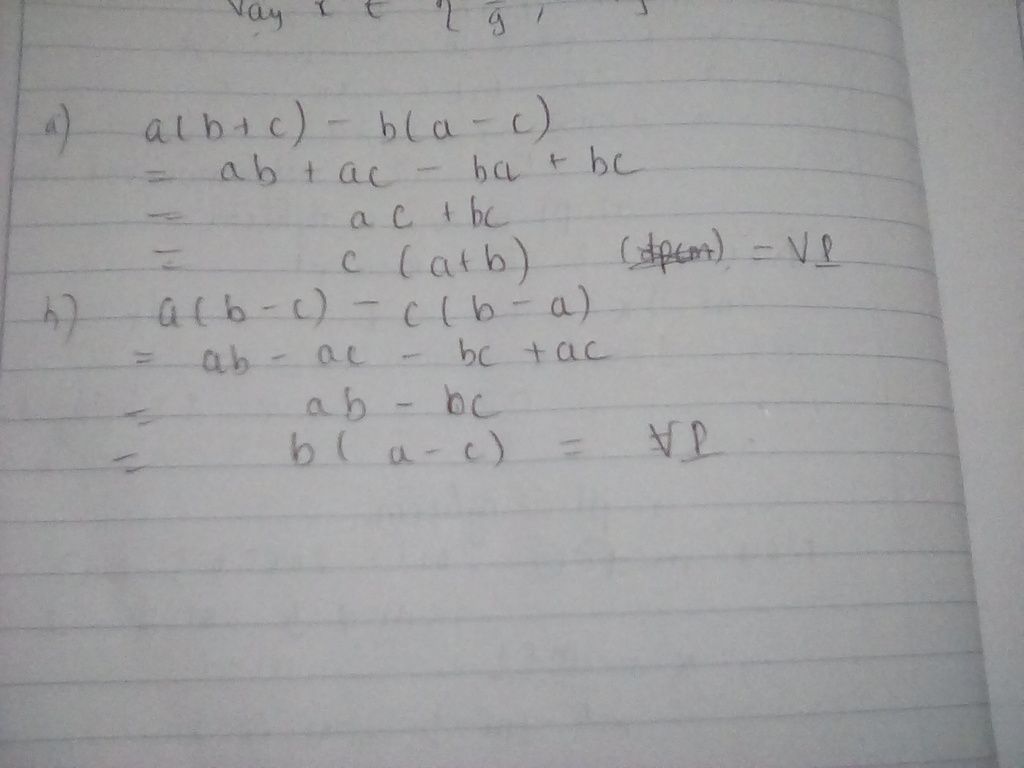 Vậy x ∈ {
a) a(b+c) - b(a-c)
= ab + ac - ba + bc
= ac + bc
= c (a+b) (đpcm) = VP
b) a(b-c) - c(b-a)
= ab - ac - bc + ac
= ab - bc
= b(a-c) = VP